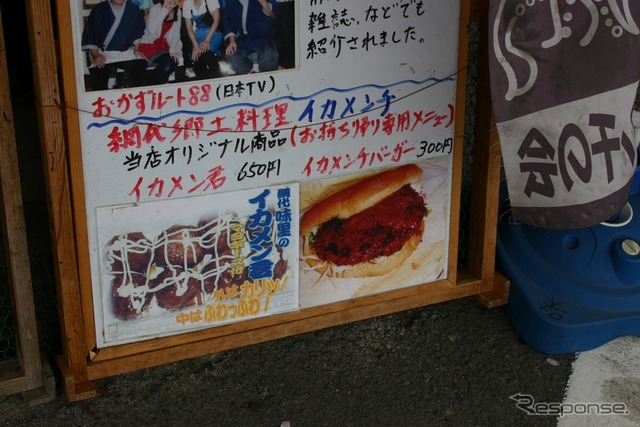 雑誌、などでも
紹介されました。
おかずルート88(日本TV)
網代郷土料理 イカメンチ
当店オリジナル商品(お持ち帰り専用メニュー)
イカメン君 650円
イカメンチバーガー 300円
網代味里の
イカメン君
外はカリッ!
中はふわっふわ!
チの会
Response.